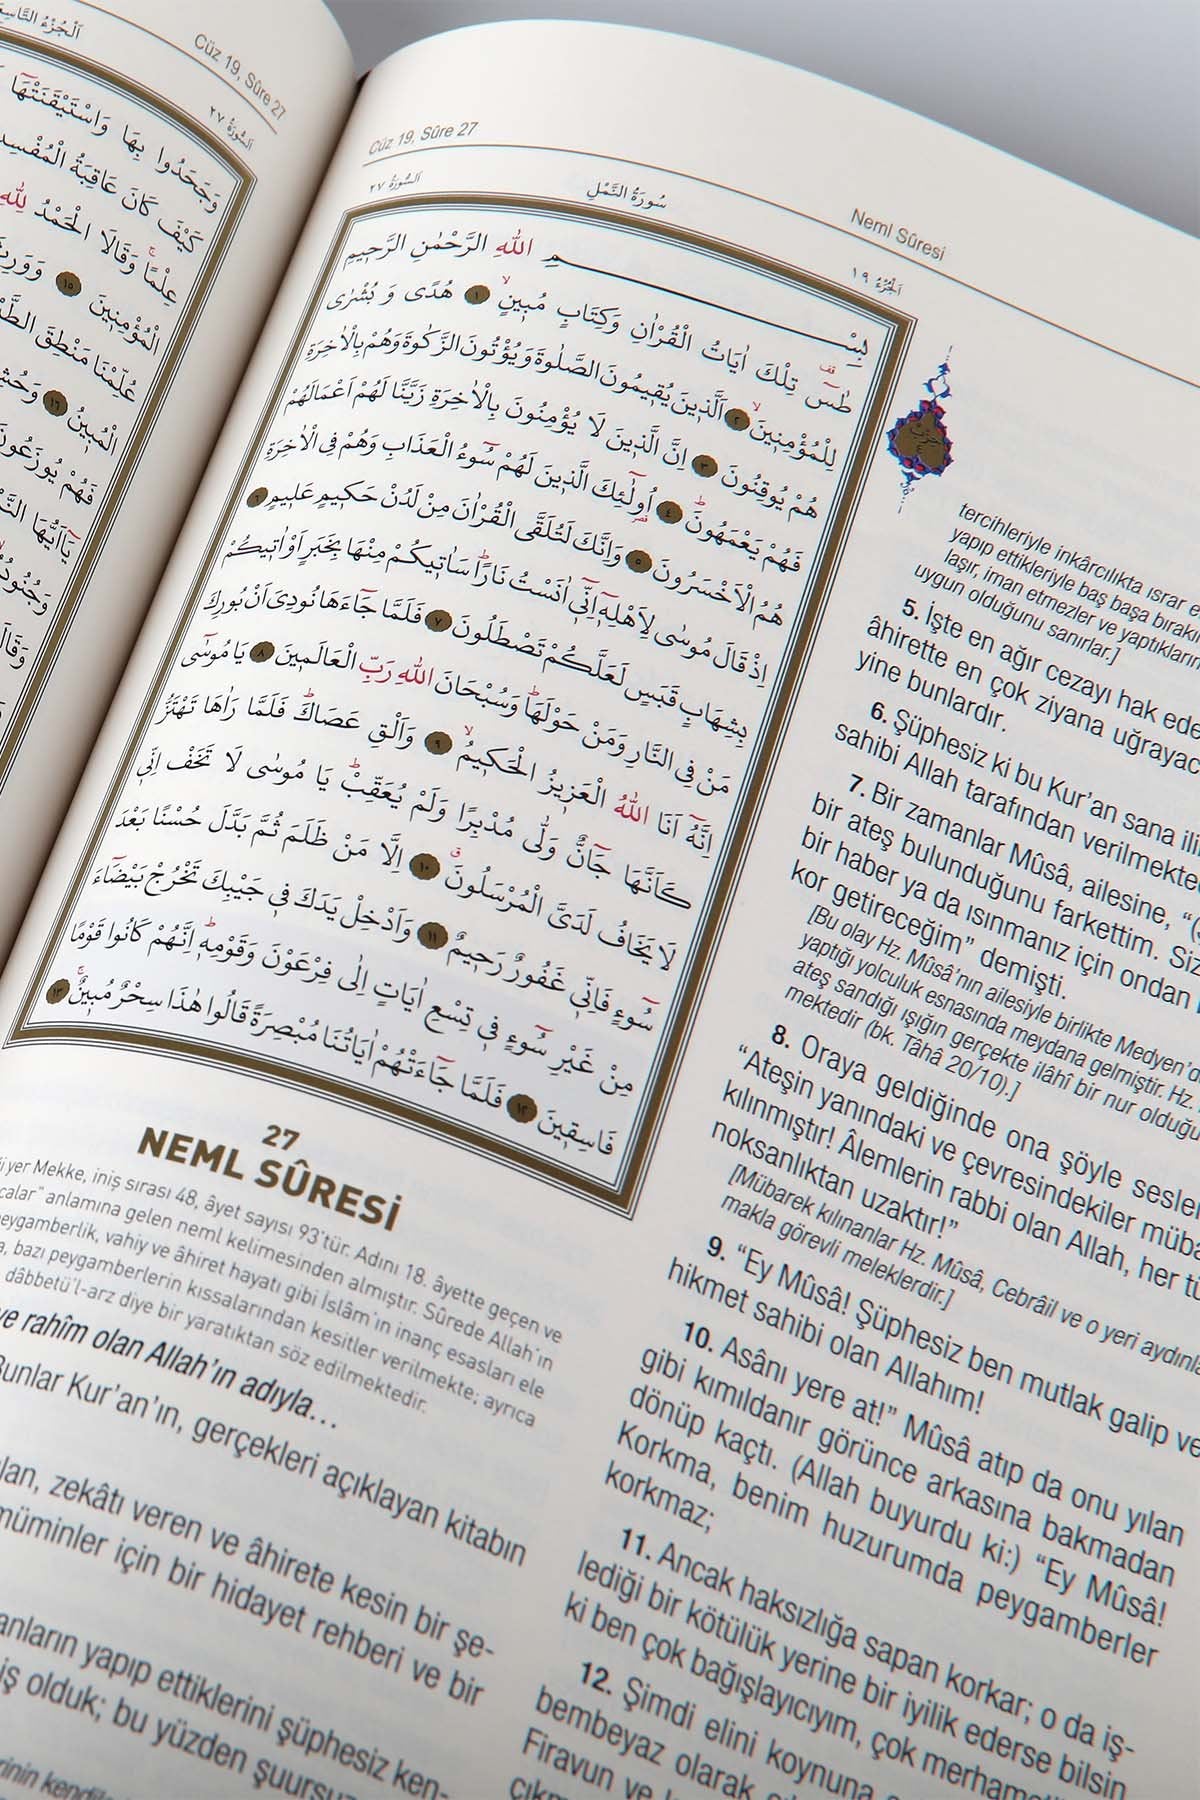 اَلْجُزْءُ التَّاسِعَ
Cüz 19, Sûre 27
اَلسُّورَةُ ٢٧
وَجَحَدُوا بِهَا وَاسْتَيْقَنَتْهَٓا
كَيْفَ كَانَ عَاقِبَةُ الْمُفْسِد
عِلْمًاۚ وَقَالَا الْحَمْدُ لِلّٰهِ
الْمُؤْمِنٖينَ ١٥ وَوَرِثَ
عُلِّمْنَا مَنْطِقَ الطَّ
الْمُبٖينُ ١٦ وَحُشِ
فَهُمْ يُوزَعُونَ
يَٓا اَيُّهَا النَّمْ
وَجُنُودُهُ
وَقَالَ
Cüz 19, Sûre 27
Neml Sûresi
اَلسُّورَةُ ٢٧
سُورَةُ النَّمْلِ
اَلْجُزْءُ ١٩
بِسْمِ اللّٰهِ الرَّحْمٰنِ الرَّحٖيمِ
طٰسٓ تِلْكَ اٰيَاتُ الْقُرْاٰنِ وَكِتَابٍ مُبٖينٍۙ ١ هُدًى وَ بُشْرٰى
لِلْمُؤْمِنٖينَۙ ٢ اَلَّذٖينَ يُقٖيمُونَ الصَّلٰوةَ وَيُؤْتُونَ الزَّكٰوةَ وَهُمْ بِالْاٰخِرَةِ
هُمْ يُوقِنُونَ ٣ اِنَّ الَّذٖينَ لَا يُؤْمِنُونَ بِالْاٰخِرَةِ زَيَّنَّا لَهُمْ اَعْمَالَهُمْ
فَهُمْ يَعْمَهُونَؕ ٤ اُو۬لٰٓئِكَ الَّذٖينَ لَهُمْ سُٓوءُ الْعَذَابِ وَهُمْ فِي الْاٰخِرَةِ
هُمُ الْاَخْسَرُونَ ٥ وَاِنَّكَ لَتُلَقَّى الْقُرْاٰنَ مِنْ لَدُنْ حَكٖيمٍ عَلٖيمٍ ٦
اِذْ قَالَ مُوسٰى لِاَهْلِهٖٓ اِنّٖٓي اٰنَسْتُ نَارًاؕ سَاٰتٖيكُمْ مِنْهَا بِخَبَرٍ اَوْ اٰتٖيكُمْ
بِشِهَابٍ قَبَسٍ لَعَلَّكُمْ تَصْطَلُونَ ٧ فَلَمَّا جَٓاءَهَا نُودِيَ اَنْ بُورِكَ
مَنْ فِي النَّارِ وَمَنْ حَوْلَهَاؕ وَسُبْحَانَ اللّٰهِ رَبِّ الْعَالَمٖينَ ٨ يَا مُوسٰٓى
اِنَّهُٓ اَنَا اللّٰهُ الْعَزٖيزُ الْحَكٖيمُۙ ٩ وَاَلْقِ عَصَاكَؕ فَلَمَّا رَاٰهَا تَهْتَزُّ
كَاَنَّهَا جَٓانٌّ وَلّٰى مُدْبِرًا وَلَمْ يُعَقِّبْؕ يَا مُوسٰى لَا تَخَفْ اِنّٖي
لَا يَخَافُ لَدَيَّ الْمُرْسَلُونَ ١٠ اِلَّا مَنْ ظَلَمَ ثُمَّ بَدَّلَ حُسْنًا بَعْدَ
سُٓوءٍ فَاِنّٖي غَفُورٌ رَحٖيمٌ ١١ وَاَدْخِلْ يَدَكَ فٖي جَيْبِكَ تَخْرُجْ بَيْضَٓاءَ
مِنْ غَيْرِ سُٓوءٍ فٖي تِسْعِ اٰيَاتٍ اِلٰى فِرْعَوْنَ وَقَوْمِهٖؕ اِنَّهُمْ كَانُوا قَوْمًا
فَاسِقٖينَ ١٢ فَلَمَّا جَٓاءَتْهُمْ اٰيَاتُنَا مُبْصِرَةً قَالُوا هٰذَا سِحْرٌ مُبٖينٌۚ ١٣
27
NEML SÛRESİ
yer Mekke, iniş sırası 48, âyet sayısı 93'tür. Adını 18. âyette geçen ve
calar" anlamına gelen neml kelimesinden almıştır. Sûrede Allah'ın
peygamberlik, vahiy ve âhiret hayatı gibi İslâm'ın inanç esasları ele
bazı peygamberlerin kıssalarından kesitler verilmekte; ayrıca
dâbbetü'l-arz diye bir yaratıktan söz edilmektedir.
ve rahîm olan Allah'ın adıyla...
Bunlar Kur'an'ın, gerçekleri açıklayan kitabın
lan, zekâtı veren ve âhirete kesin bir şe-
müminler için bir hidayet rehberi ve bir
anların yapıp ettiklerini şüphesiz ken-
iş olduk; bu yüzden şuursuz
rinin kendi
tercihleriyle inkârcılıkta ısrar e
yapıp ettikleriyle baş başa bırakı
laşır, iman etmezler ve yaptıkların
uygun olduğunu sanırlar.]
5. İşte en ağır cezayı hak ede
âhirette en çok ziyana uğrayac
yine bunlardır.
6. Şüphesiz ki bu Kur'an sana ili
sahibi Allah tarafından verilmekted
7. Bir zamanlar Mûsâ, ailesine, "(
bir ateş bulunduğunu farkettim. Siz
bir haber ya da ısınmanız için ondan
kor getireceğim" demişti.
[Bu olay Hz. Mûsâ'nın ailesiyle birlikte Medyen'd
yaptığı yolculuk esnasında meydana gelmiştir. Hz.
ateş sandığı ışığın gerçekte ilâhî bir nur olduğu
mektedir (bk. Tâhâ 20/10).]
8. Oraya geldiğinde ona şöyle sesle
"Ateşin yanındaki ve çevresindekiler müba
kılınmıştır! Âlemlerin rabbi olan Allah, her tü
noksanlıktan uzaktır!"
[Mübarek kılınanlar Hz. Mûsâ, Cebrâil ve o yeri aydınla
makla görevli meleklerdir.]
9. "Ey Mûsâ! Şüphesiz ben mutlak galip ve
hikmet sahibi olan Allahım!
10. Asânı yere at!" Mûsâ atıp da onu yılan
gibi kımıldanır görünce arkasına bakmadan
dönüp kaçtı. (Allah buyurdu ki:) "Ey Mûsâ!
Korkma, benim huzurumda peygamberler
korkmaz;
11. Ancak haksızlığa sapan korkar; o da iş-
lediği bir kötülük yerine bir iyilik ederse bilsin
ki ben çok bağışlayıcıyım, çok merhamet
12. Şimdi elini koynuna
bembeyaz olarak
Firavun ve